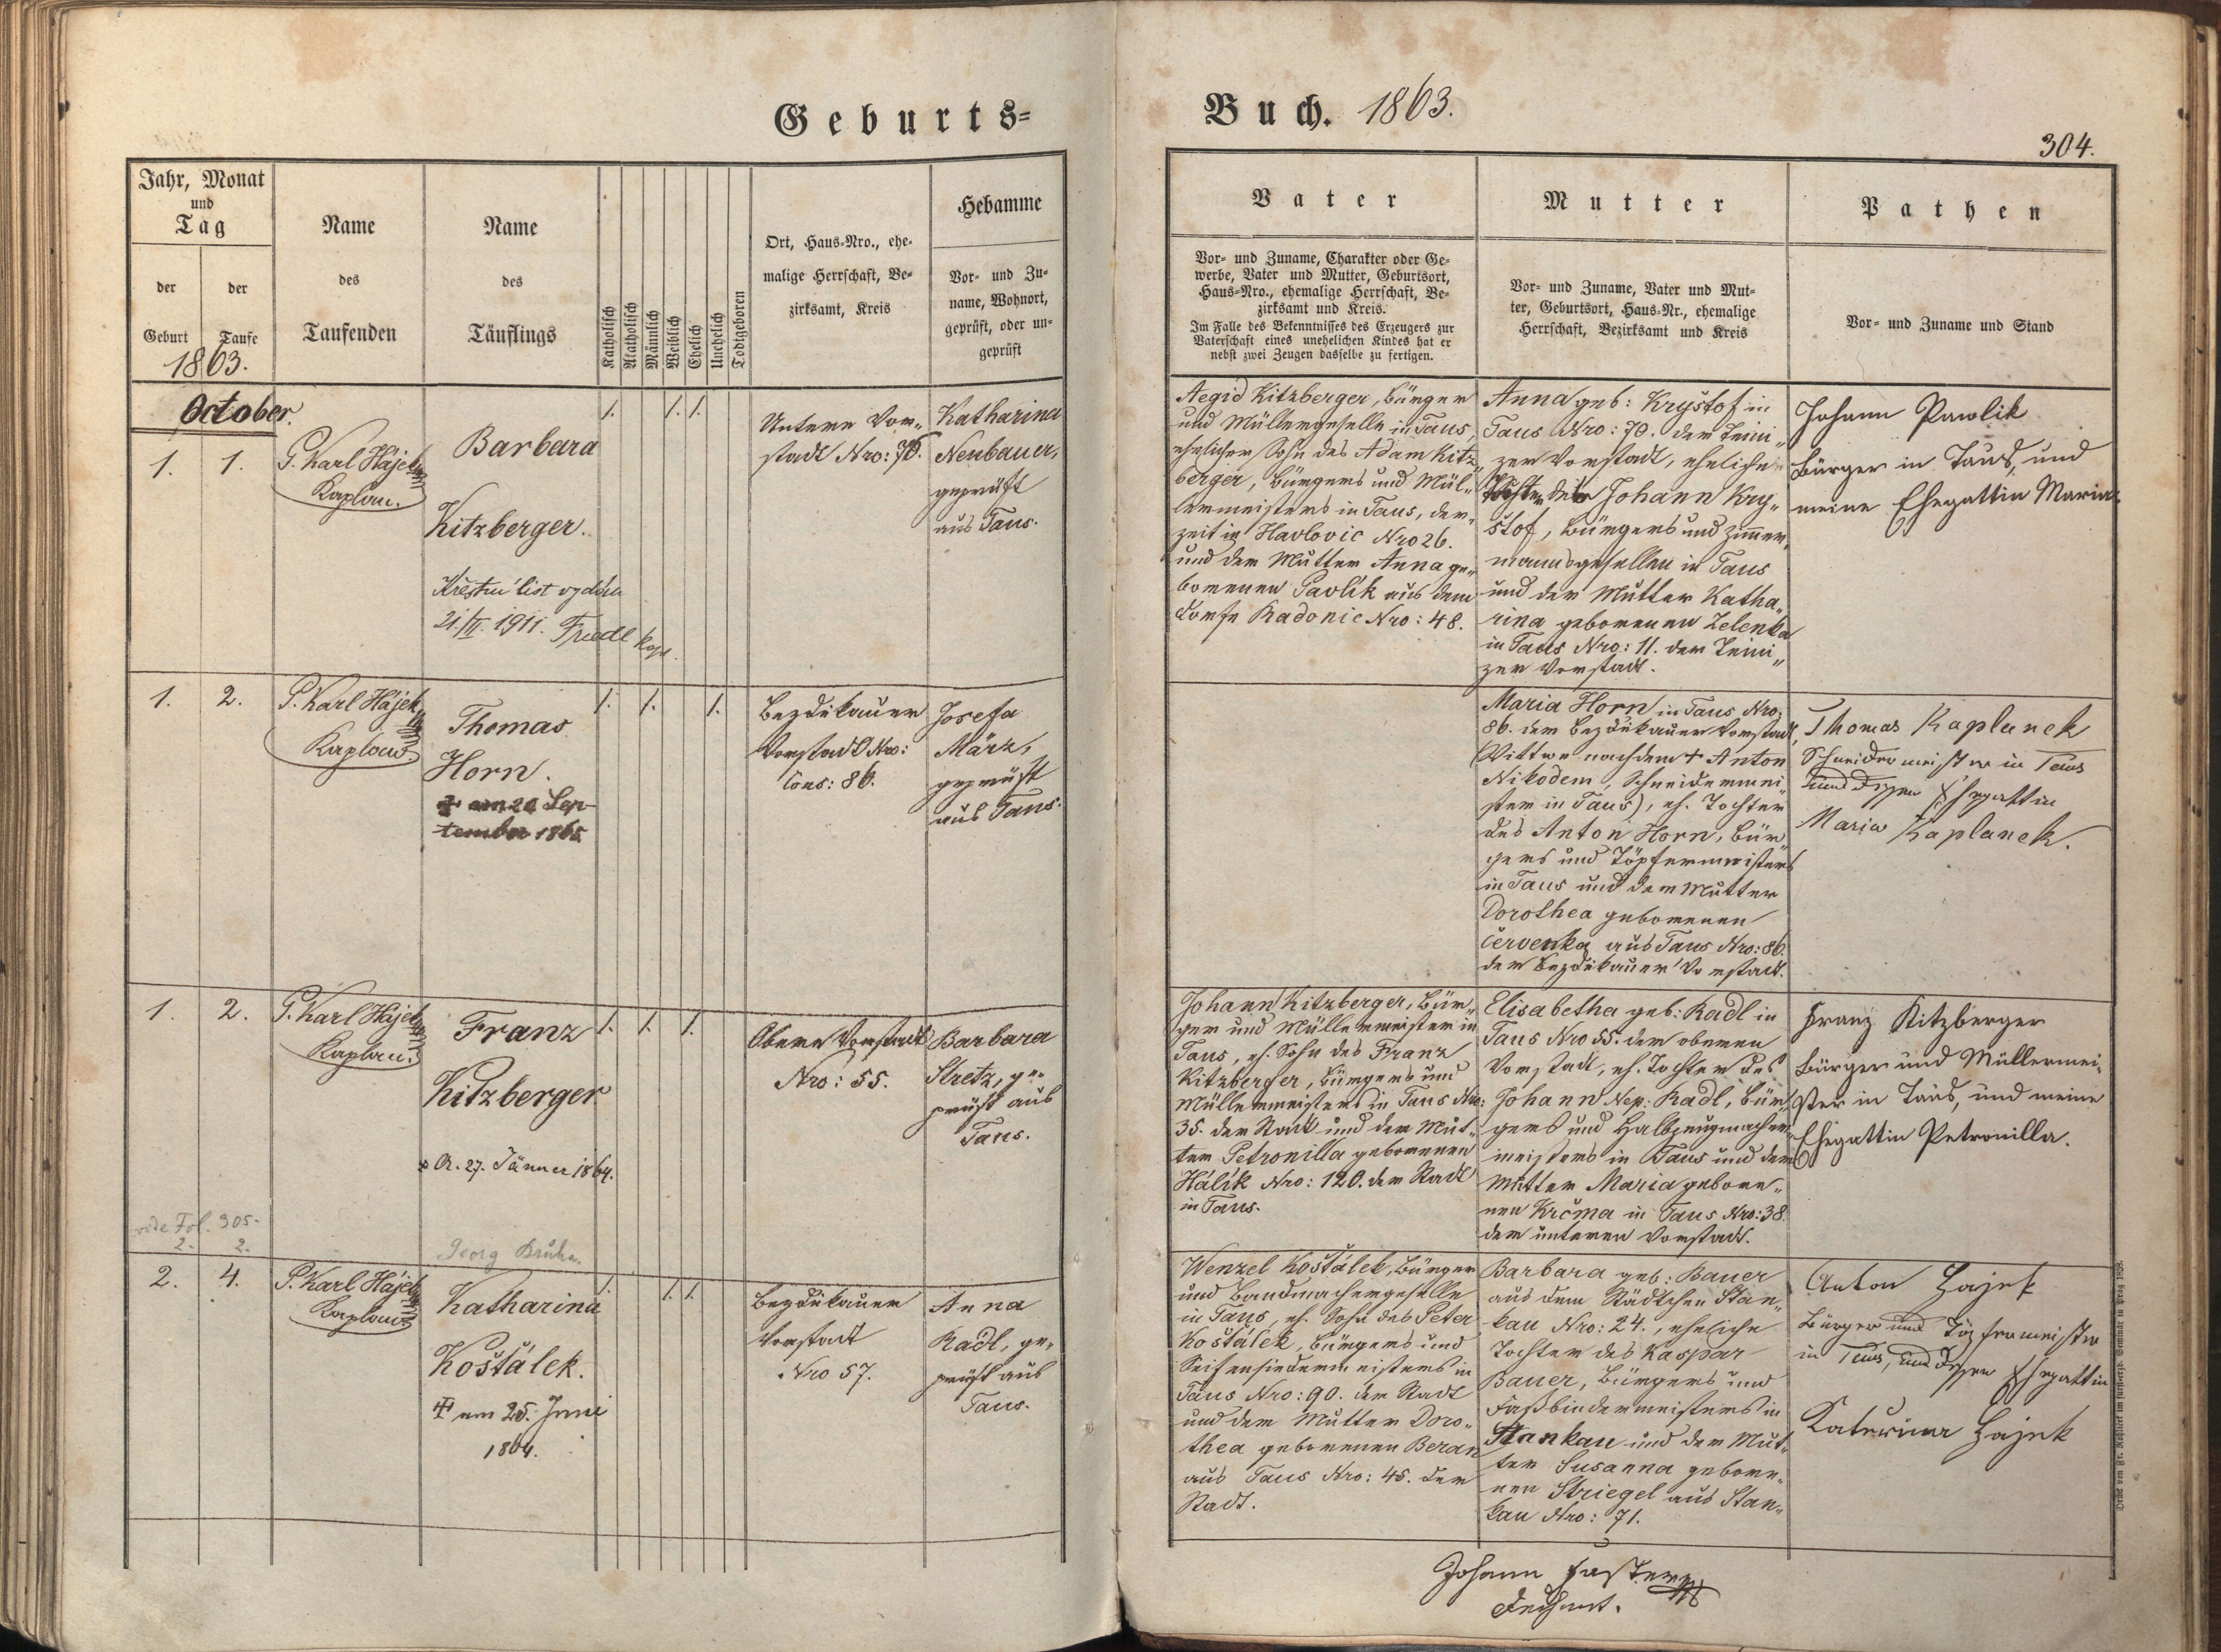 Geburts=
Buch. 1863.
304.
Jahr, Monat
und
Tag
der
Geburt
der
Taufe
1863.
Name
des
Taufenden
Name
des
Täuflings
Katholisch
Akatholisch
Männlich
Weiblich
Ehelich
Unehelich
Todtgeboren
Ort, Haus=Nro., ehe=
malige Herrschaft, Be=
zirksamt, Kreis
Hebamme
Vor= und Zu=
name, Wohnort,
geprüft, oder un=
geprüft
Vater
Vor= und Zuname, Charakter oder Ge=
werbe, Vater und Mutter, Geburtsort,
Haus=Nro., ehemalige Herrschaft, Be=
zirksamt und Kreis.
Im Falle des Bekenntnisses des Erzeugers zur
Vaterschaft eines unehelichen Kindes hat er
nebst zwei Zeugen dasselbe zu fertigen.
Mutter
Vor= und Zuname, Vater und Mut=
ter, Geburtsort, Haus=Nr., ehemalige
Herrschaft, Bezirksamt und Kreis
Pathen
Vor= und Zuname und Stand
October.
1. 1.
P. Karl Hájek
Kaplan.
Barbara
Kitzberger.
Křestní list vydán
21./ 1911. Friedl kapl.
1. 1. 1.
Untere Vor„
stadt Nro: 76.
Katharina
Neubauer,
geprüft
aus Taus.
Aegid Kitzberger, Bürger
und Müllergeselle in Taus,
ehelicher Sohn des Adam Kitz„
berger, Bürgers und Mül„
lermeisters in Taus, der„
zeit in Havlovic Nro 26.
und der Mutter Anna ge„
borenen Pavlík aus dem
Dorfe Radonic Nro: 48.
Anna geb: Kryštof in
Taus Nro: 70. der Teini„
zer Vorstadt, eheliche
Tochter des Johann Kry„
štof, Bürgers und Zimmer„
mannsgesellen in Taus
und der Mutter Katha„
rina geborenen Zelenka
in Taus Nro: 11. der Teini„
zer Vorstadt.
Johann Pawlik
Bürger in Taus, und
meine Ehegattin Maria
1. 2.
P. Karl Hájek
Kaplan
Thomas
Horn.
am 20 Sep-
tember 1865.
1. 1. 1.
Bezděkauer
Vorstadt Nro:
Cons: 86.
Josefa
März,
geprüft
aus Taus.
Maria Horn in Taus Nro:
86. der Bezděkauer Vorstadt,
(Wittwe nach dem + Anton
Nikodem, Schneidermei„
ster in Taus), eh. Tochter
des Anton Horn, Bür„
gers und Töpfermeisters
in Taus und der Mutter
Dorothea geborenen
Červenka aus Taus Nro: 86.
der Bezděkauer Vorstadt.
Thomas Kaplanek
Schneidermeister in Taus
und dessen Ehegattin
Maria Kaplanek.
1. 2.
P. Karl Hájek
Kaplan.
Franz
Kitzberger
27. Jänner 1864.
1. 1. 1.
Obere Vorstadt
Nro: 55.
Barbara
Stretz, ge„
prüft aus
Taus.
Johann Kitzberger, Bür„
ger und Müllermeister in
Taus, eh. Sohn des Franz
Kitzberger, Bürgers und
Müllermeisters in Taus Nro:
35. der Stadt und der Mut„
ter Petronilla geborenen
Hálík Nro: 120. der Stadt
in Taus.
Elisabetha geb: Radl in
Taus Nro 55. der oberen
Vorstadt, eh. Tochter des
Johann Nep: Radl, Bür„
gers und Halbzeugmacher„
meisters in Taus und der
Mutter Maria gebore„
nen Krčma in Taus Nro: 38.
der unteren Vorstadt.
Franz Kitzberger
Bürger und Müllermei„
ster in Taus, und meine
Ehegattin Petronilla.
vide Fol. 305.
2. 2.
Georg Bruha.
2. 4.
P. Karl Hájek
Kaplan
Katharina
Košťálek.
am 25. Juni
1864.
1. 1. 1.
Bezděkauer
Vorstadt
Nro 57.
Anna
Radl, ge„
prüft aus
Taus.
Wenzel Košťálek, Bürger
und Bandmachergeselle
in Taus, eh. Sohn des Peter
Košťálek, Bürgers und
Seifensiedermeisters in
Taus Nro: 90. der Stadt
und der Mutter Doro„
thea geborenen Beran
aus Taus Nro: 45. der
Stadt.
Barbara geb: Bauer
aus dem Städtchen Stan„
kau Nro: 24., eheliche
Tochter des Kaspar
Bauer, Bürgers und
Faßbindermeisters in
Stankau und der Mut„
ter Susanna gebore„
nen Striegel aus Stan„
kau Nro: 71.
Anton Hajek
Bürger und Töpfermeister
in Taus, und dessen Ehegattin
Katerina Hajek
Johann Faster
Dechant.